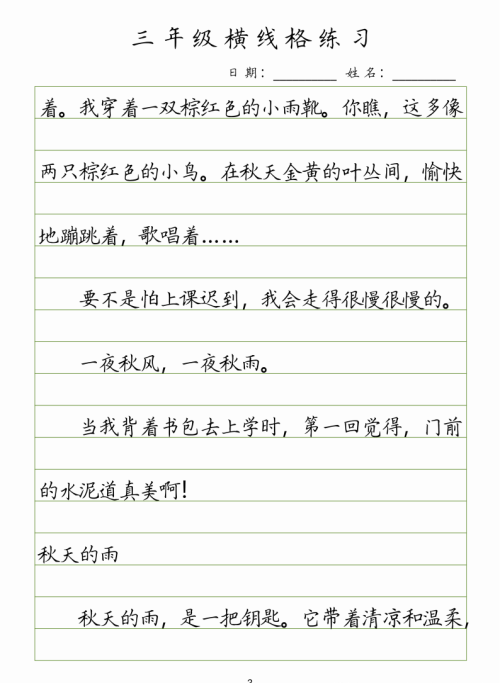 三年级横线格练习
日期：________ 姓名：________
着。我穿着一双棕红色的小雨靴。你瞧，这多像
两只棕红色的小鸟。在秋天金黄的叶丛间，愉快
地蹦跳着，歌唱着……
要不是怕上课迟到，我会走得很慢很慢的。
一夜秋风，一夜秋雨。
当我背着书包去上学时，第一回觉得，门前
的水泥道真美啊！
秋天的雨
秋天的雨，是一把钥匙。它带着清凉和温柔，